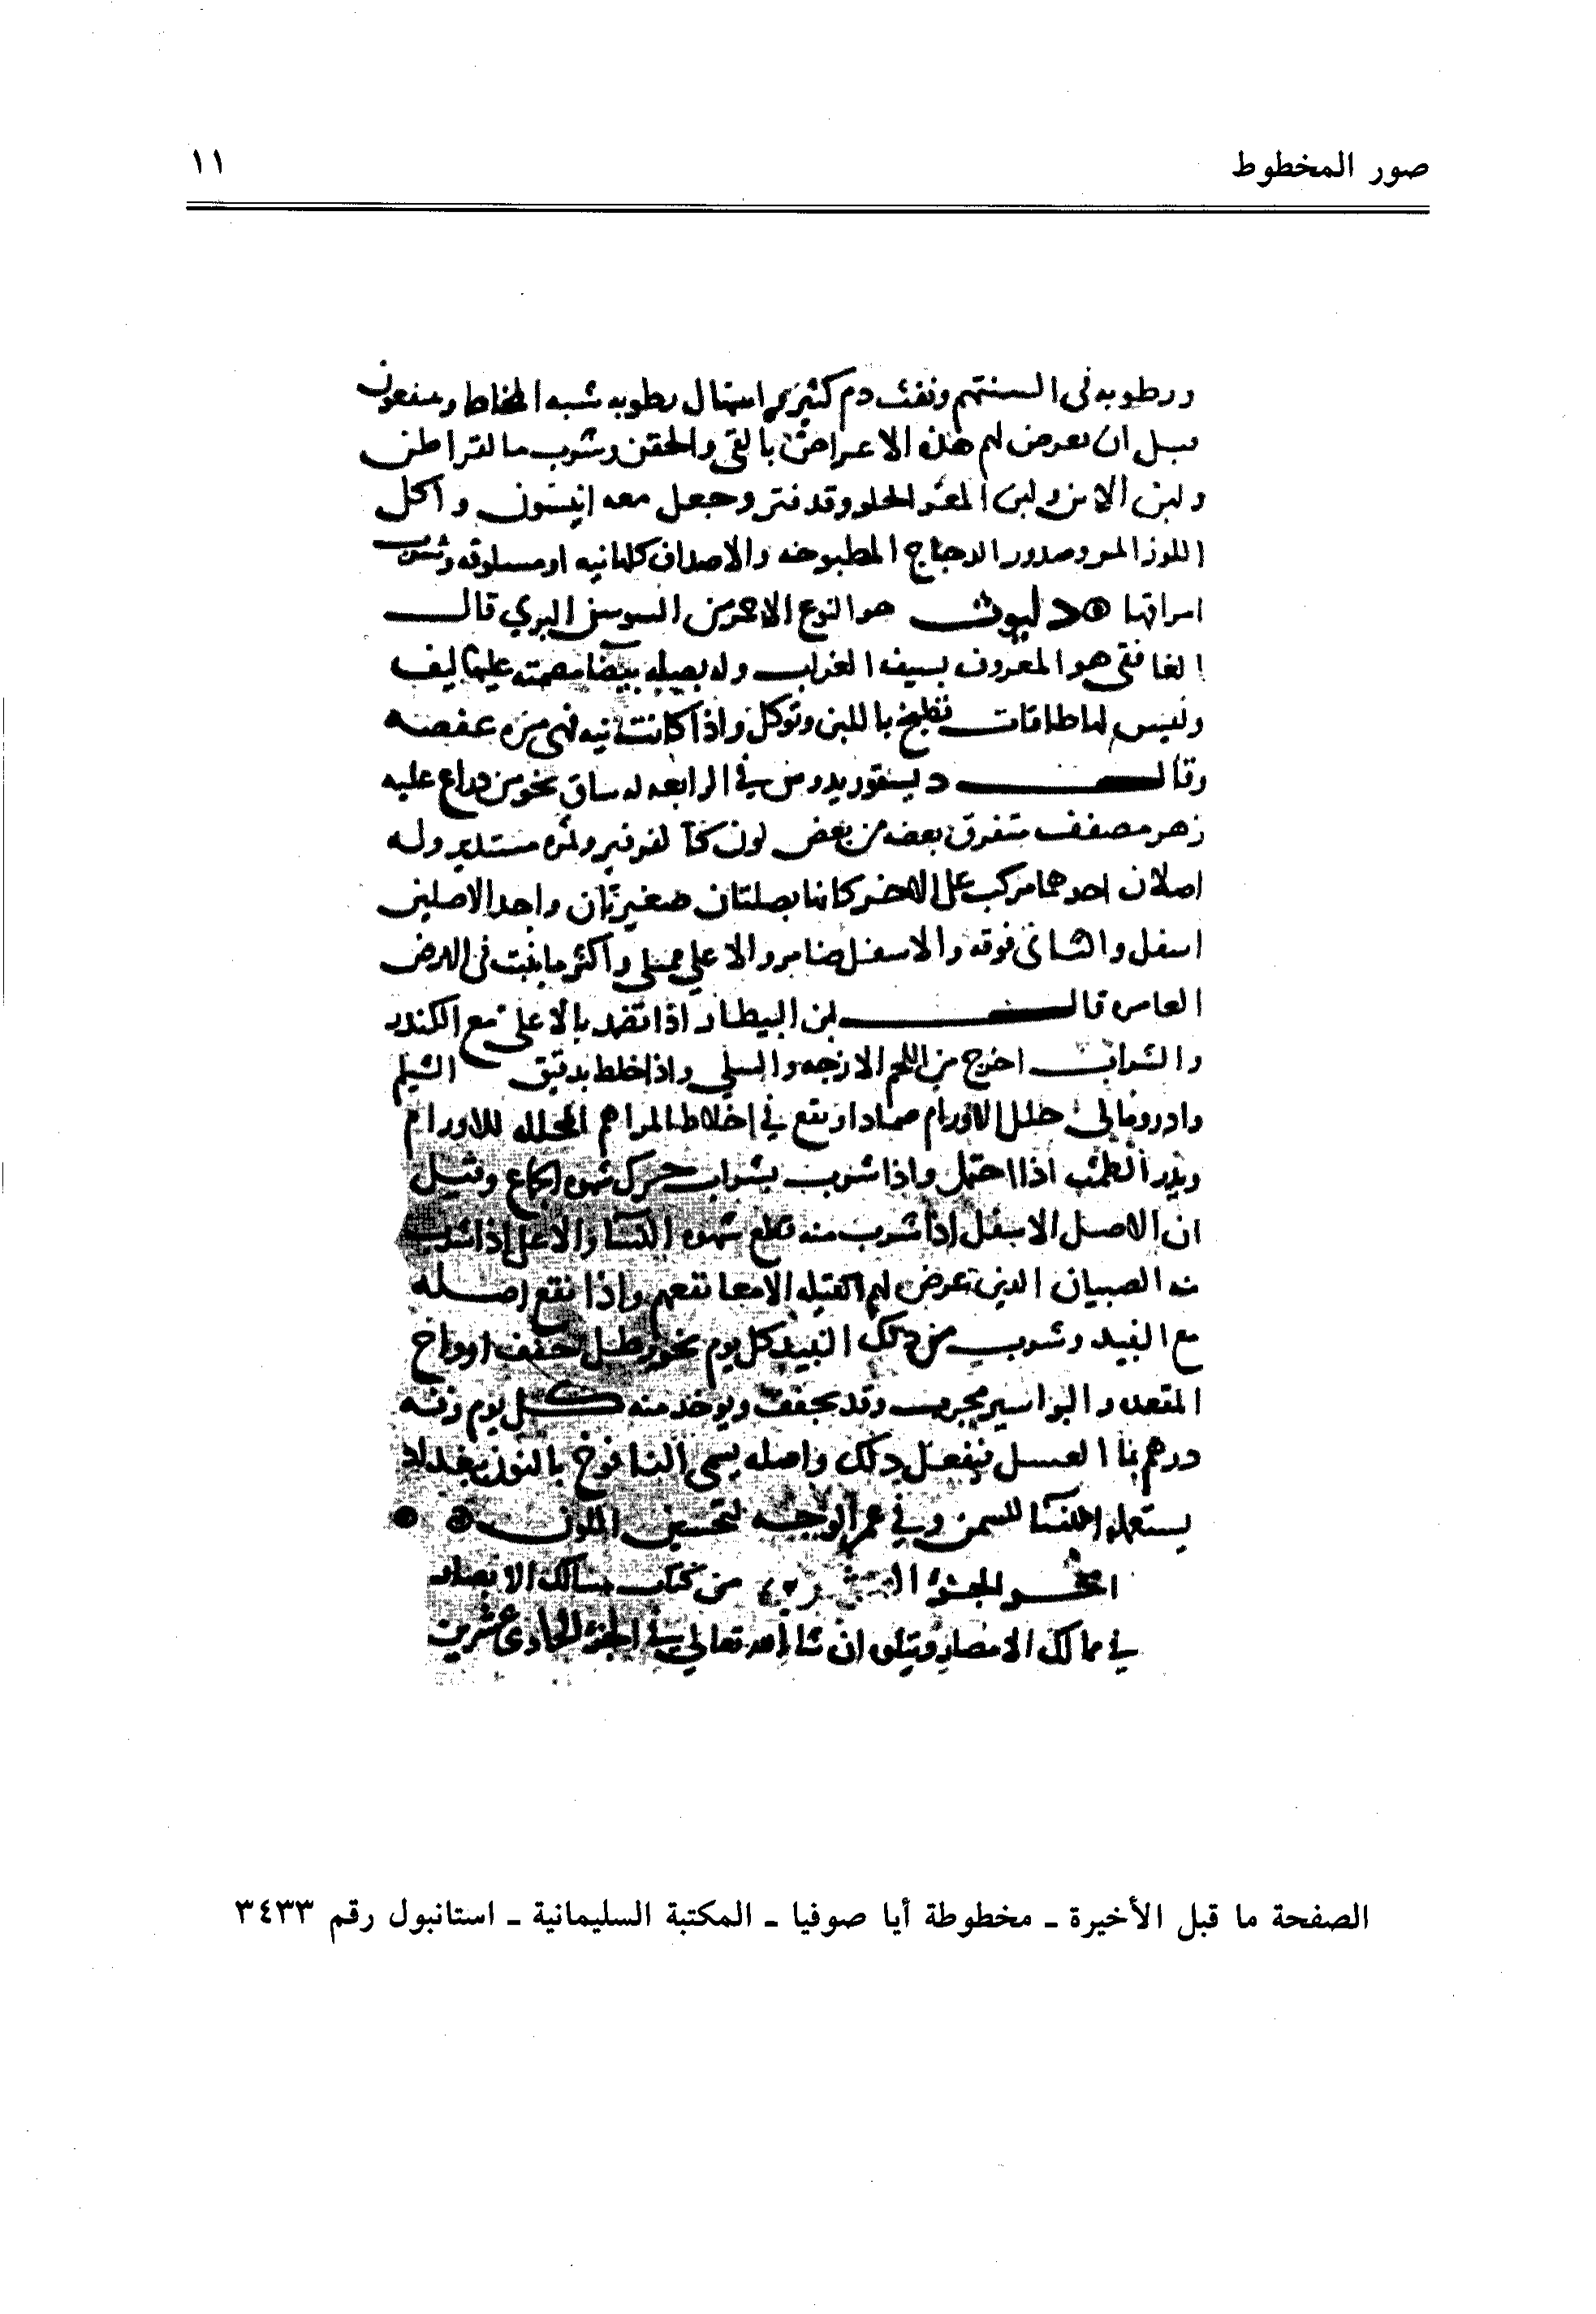 صور المخطوط
١١
ورطوبه فى السنتهم ونفث دم كثير او اسهال رطوبه شبه المخاط وينفعون
قبل ان تعرض لهم هذه الاعراض بالقى والحقن وشرب مالقراطن
ولبن الاتن ولبن المعز الحلو وقد فتر وجعل معه انيسون واكل
اللوز المر وصدور الدجاج المطبوخه والاصداف كلها نيه او مسلوقه وشرب
امراقها دلبوث هو النوع الاحمر من السوسن البري قال
الغافقى هو المعروف بسيف الغراب وله بصيله بيضا مصمته عليها ليف
وليس لها طاقات تطبخ باللبن وتوكل واذا كانت نيه فهى مره عفصه
وقال ديسقوريدوس في الرابعه له ساق نحو من ذراع عليه
زهر مصفف متفرق بعضه من بعض لونه كالفرفير وثمره مستدير وله
اصلان احدهما مركب على الاخر كانها بصلتان صغيرتان واحد الاصلين
اسفل والثانى فوقه والاسفل ضامر والاعلى ممتلى واكثر ما ينبت فى الارض
العامره قال ابن البيطار اذا تضمد بالاعلى مع الكندر
والشراب اخرج من اللحم الازجه والسلى واذا خلط بدقيق الشيلم
وادرومالى حلل الاورام ضمادا ويقع في اخلاط المراهم المحلله للاورام
ويدر الطمث اذا احتمل واذا شرب بشراب حرك شهوه الجماع وقيل
ان الاصل الاسفل اذا شرب منه قطع شهوه النسا والاعلى اذا شرب
منه الصبيان الذين تعرض لهم القيله الامعا نفعهم واذا نقع اصله
مع النبيذ وشرب من ذلك النبيذ كل يوم نحو رطل جفف ارواح
المقعده والبواسير مجرب وقد يجفف ويوخذ منه كل يوم زنه
درهم بما العسل فيفعل ذلك واصله يسمى النافوخ بالنون ببغداد
يستعمله النسا للسمن وفي غمر الوجه لتحسين اللون
اخر الجزء العشرين من كتاب مسالك الابصار
في ممالك الامصار ويتلوه ان شا الله تعالى في الجزء الحادى عشرين
الصفحة ما قبل الأخيرة ـ مخطوطة أيا صوفيا ـ المكتبة السليمانية ـ استانبول رقم ٣٤٣٣